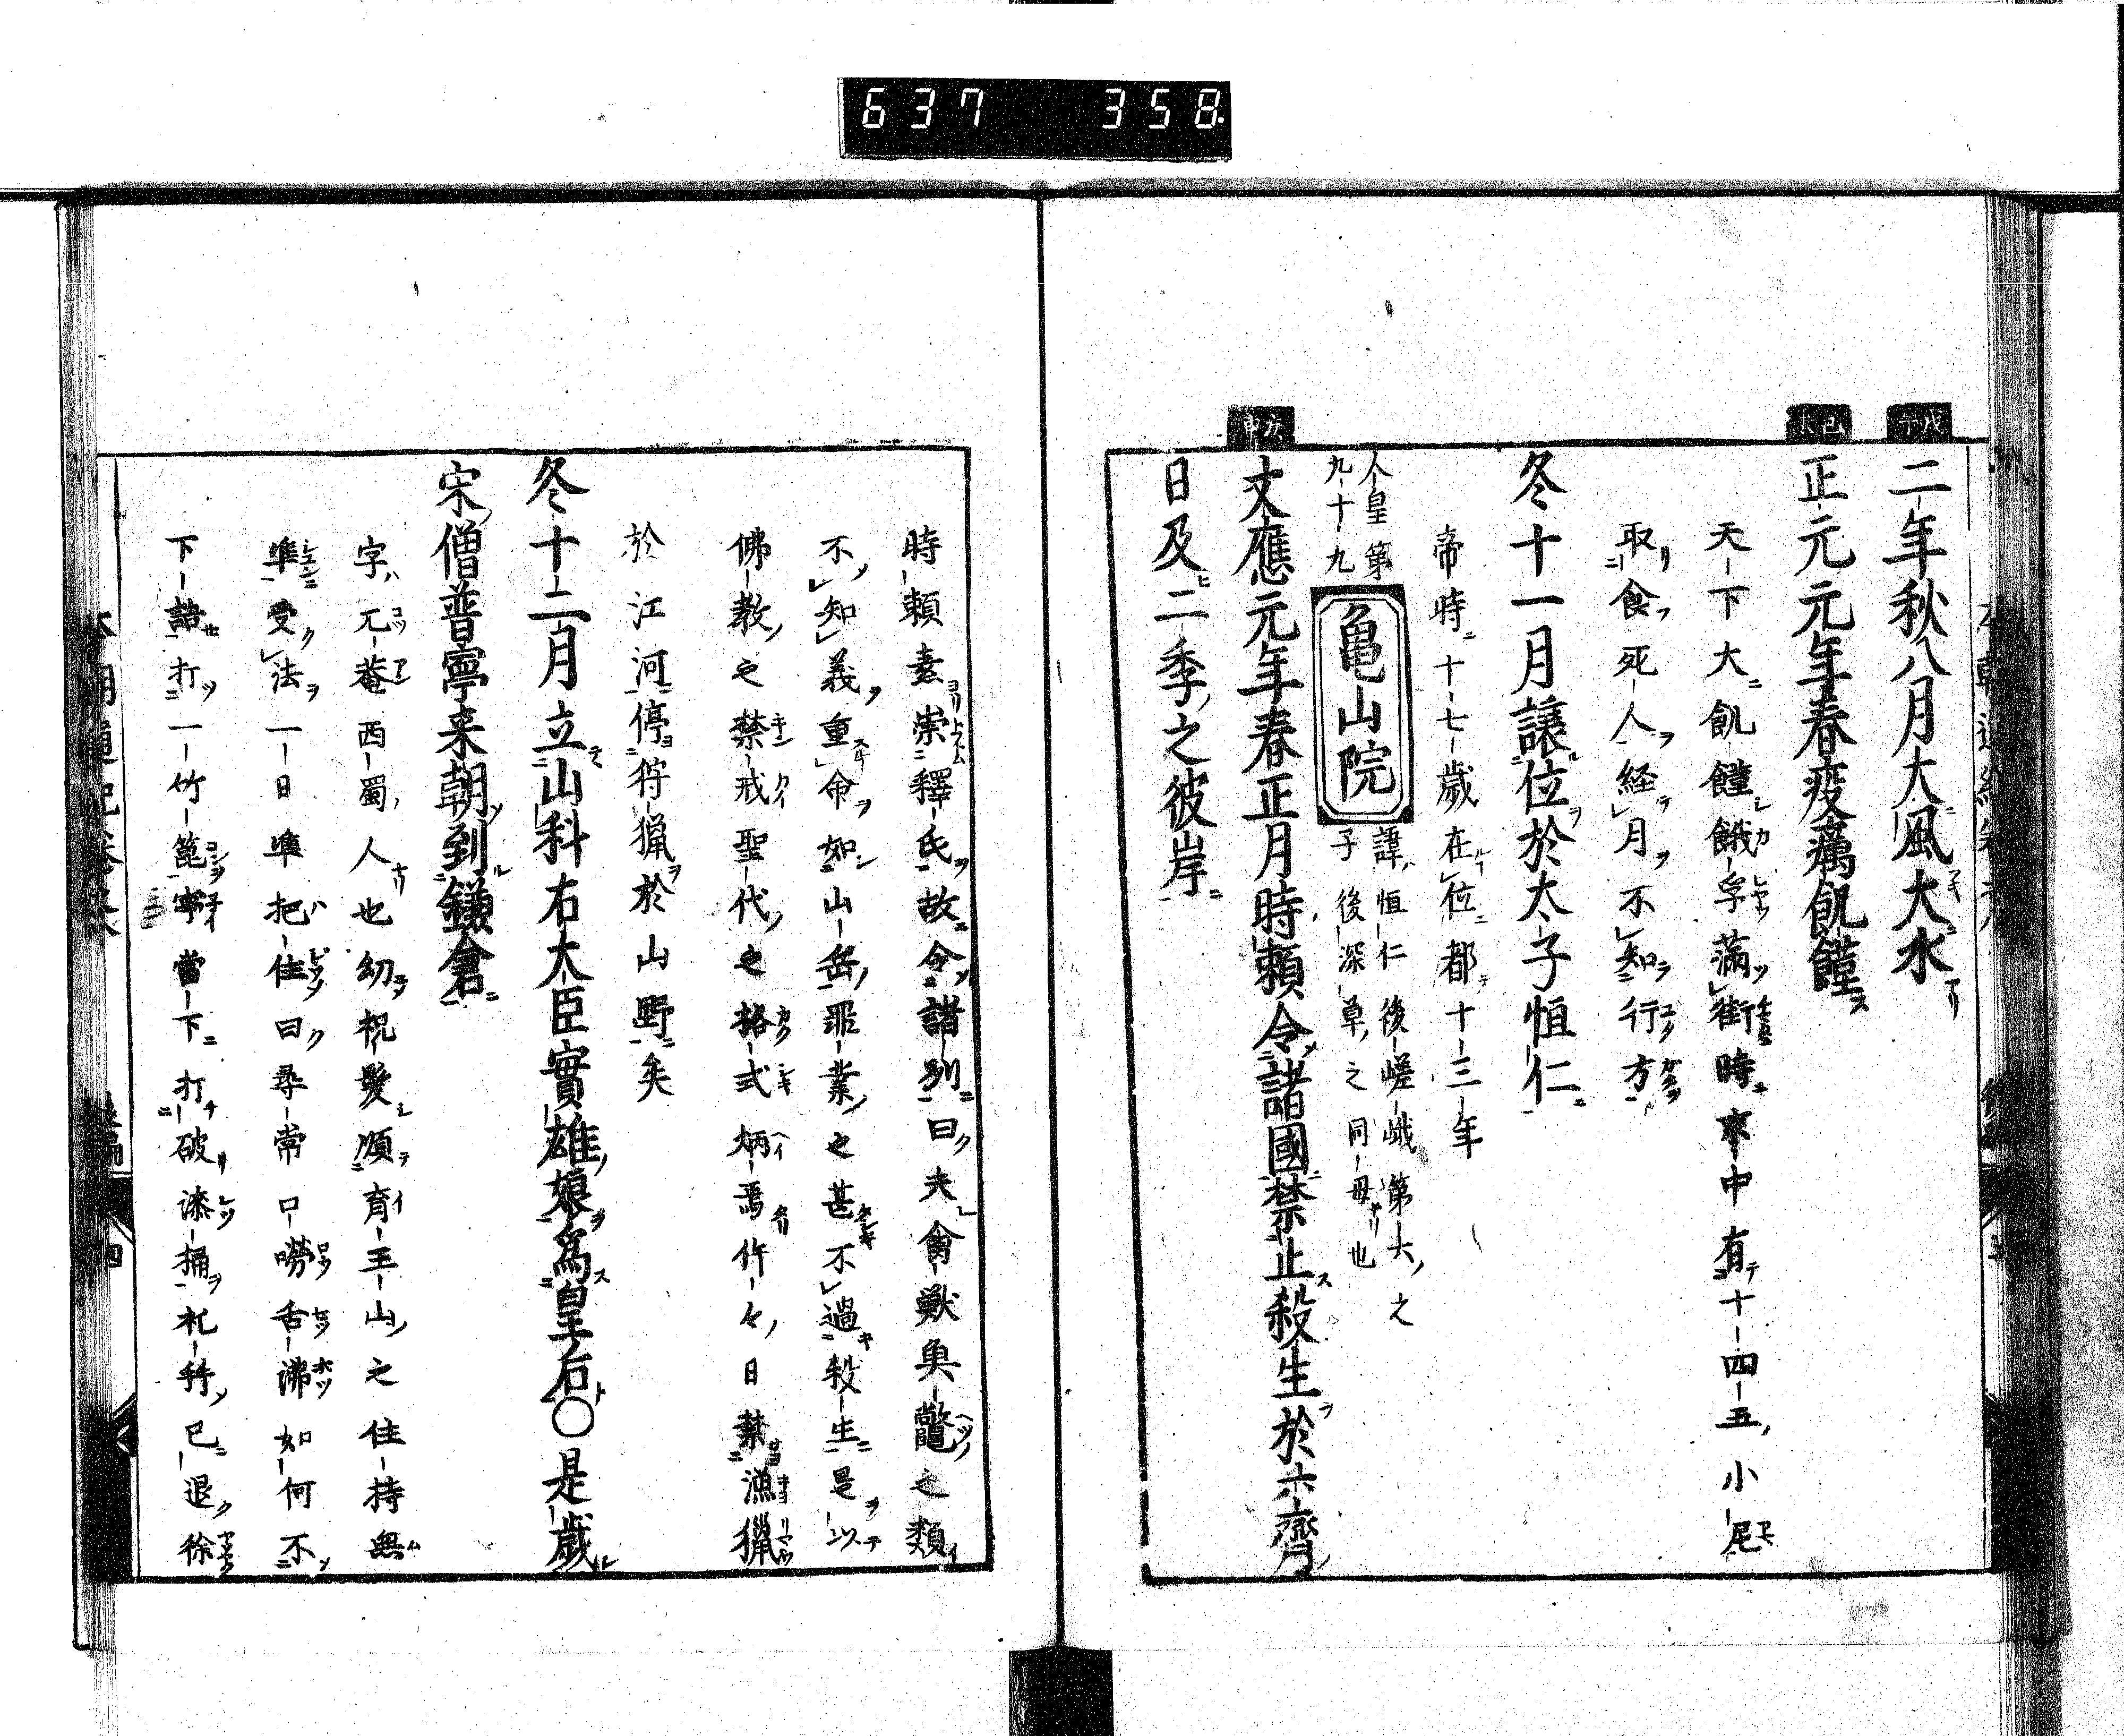 637 358
戊午
二年秋八月大風大水
己未
正元元年春疫癘飢饉
天下大飢饉餓孚滿街時京中有十四五小尼
取食死人経月不知行方
冬十一月讓位於太子恒仁
帝時十七歲在位都十三年
人皇第九十九
亀山院
諱恒仁後嵯峨第六之
子後深草之同母也
庚申
文應元年春正月時頼令諸國禁止殺生於六齊
日及二季之彼岸
時頼素崇釋氏故令諸別曰夫禽獣魚鼈之類
不知義重命如山岳罪業之甚不過殺生是以
佛教之禁戒聖代之格式炳焉件々日禁漁猟
於江河停狩猟於山野矣
冬十二月立山科右大臣實雄娘爲皇后〇是歲
宋僧普寧来朝到鎌倉
字兀菴西蜀人也幼祝髮順育王山之住持無
準受法一日準把住曰尋常口嘮舌沸如何不
下語打一竹箆寧當下打破漆桶礼拝已退徐